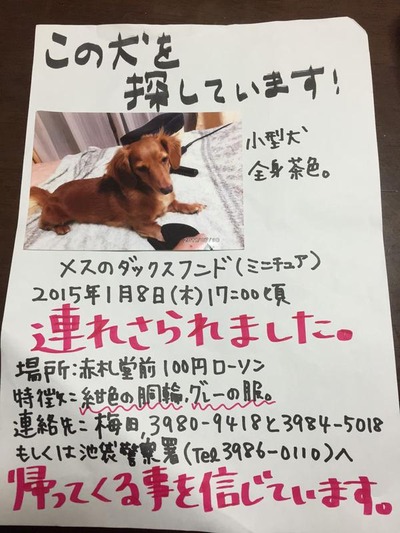 この犬を
探しています!
小型犬
全身茶色。
メスのダックスフンド(ミニチュア)
2015年1月8日(木)17:00頃
連れさられました。
場所:赤札堂前100円ローソン
特徴:紺色の胴輪、グレーの服。
連絡先:梅田、3980-9418と3984-5018
もしくは池袋警察署(Tel3986-0110)へ
帰ってくる事を信じています。